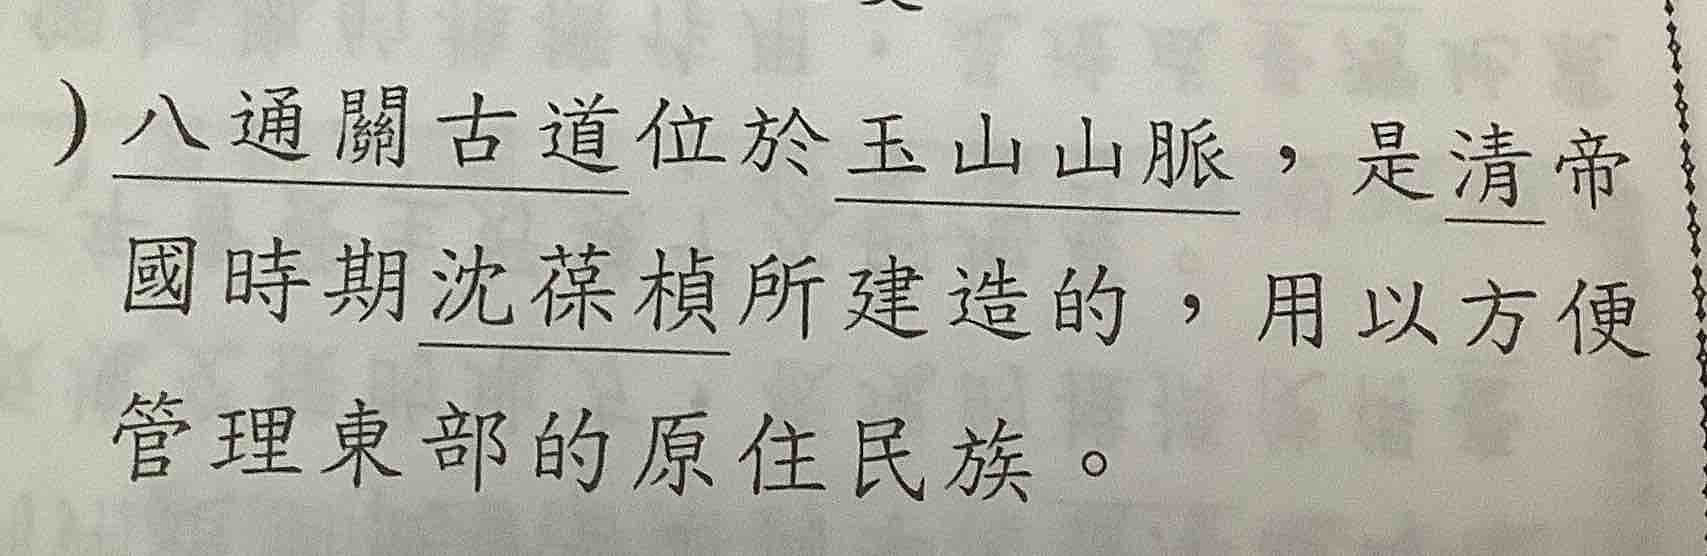 )八通關古道位於玉山山脈，是清帝
國時期沈葆楨所建造的，用以方便
管理東部的原住民族。